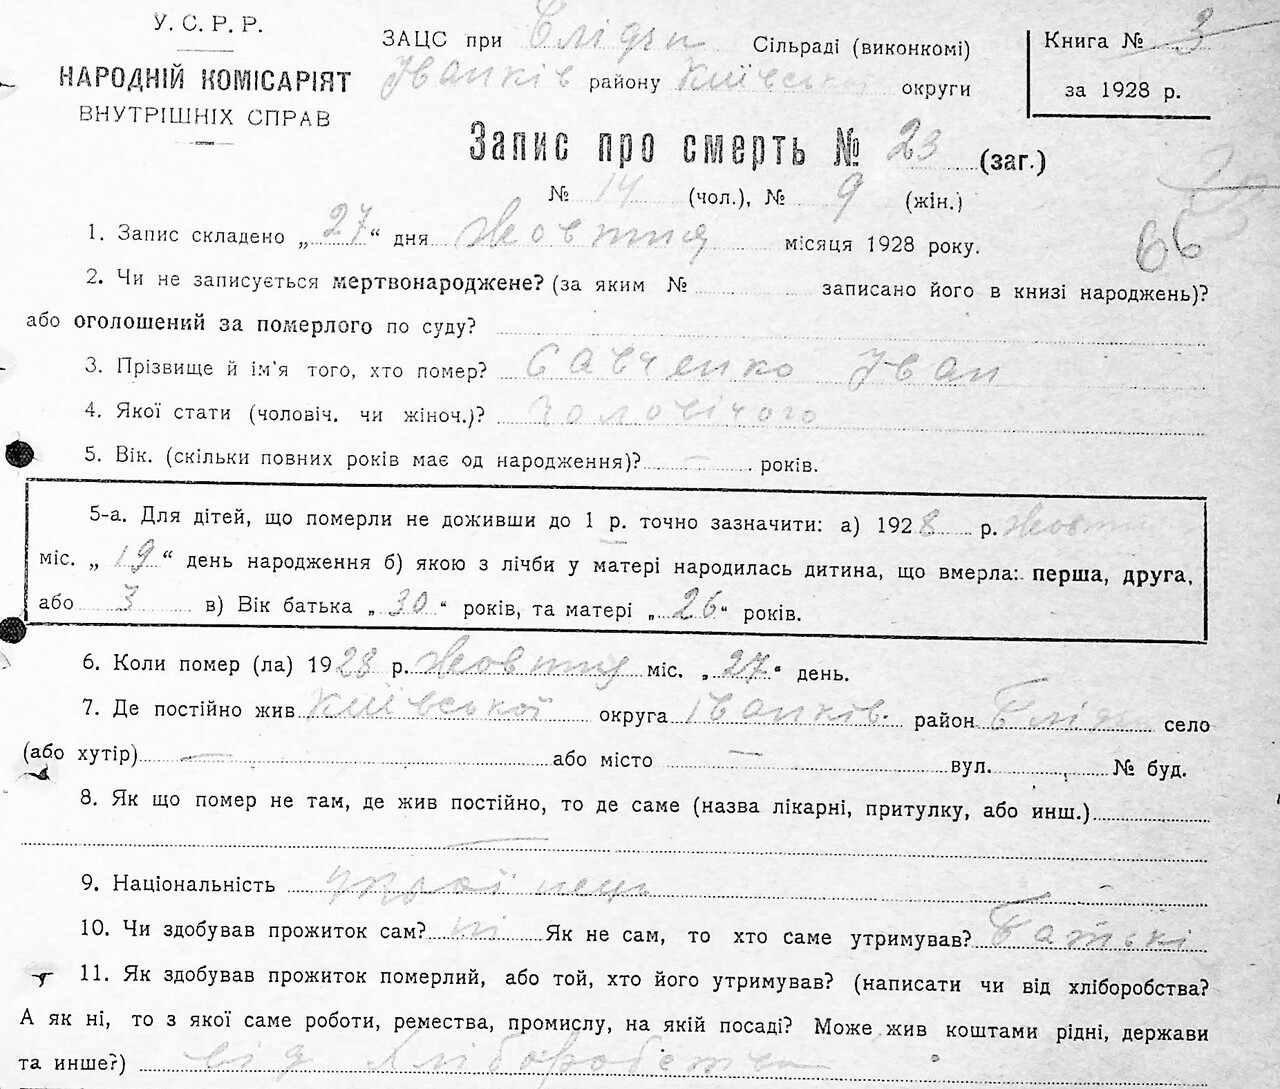 У. С. Р. Р.
НАРОДНІЙ КОМІСАРІЯТ
ВНУТРІШНІХ СПРАВ
ЗАЦС при Сільраді (виконкомі)
Іванків району Київської округи
Книга № 3
за 1928 р.
Запис про смерть № 23 (заг.)
№ 14 (чол.), № 9 (жін.)
66
1. Запис складено „ 27 “ дня Жовтня місяця 1928 року.
2. Чи не записується мертвонароджене? (за яким № записано його в книзі народжень)?
або оголошений за померлого по суду?
3. Прізвище й ім'я того, хто помер? Савченко Іван
4. Якої стати (чоловіч. чи жіноч.)? чоловічого
5. Вік. (скільки повних років має од народження)? – років.
5-а. Для дітей, що померли не доживши до 1 р. точно зазначити: а) 1928 р. Жовтня
міс. „ 19 “ день народження б) якою з лічби у матері народилась дитина, що вмерла: перша, друга,
або 3 в) Вік батька „ 30 “ років, та матері „ 26 “ років.
6. Коли помер (ла) 1928 р. Жовтня міс. „ 27 “ день.
7. Де постійно жив Київської округа Іванків. район село
(або хутір) — або місто — вул. № буд.
8. Як що помер не там, де жив постійно, то де саме (назва лікарні, притулку, або инш.)
—
9. Національність українець
10. Чи здобував прожиток сам? ні Як не сам, то хто саме утримував? Батькі
11. Як здобував прожиток померлий, або той, хто його утримував? (написати чи від хліборобства?
А як ні, то з якої саме роботи, ремества, промислу, на якій посаді? Може жив коштами рідні, держави
та инше?) від хліборобства